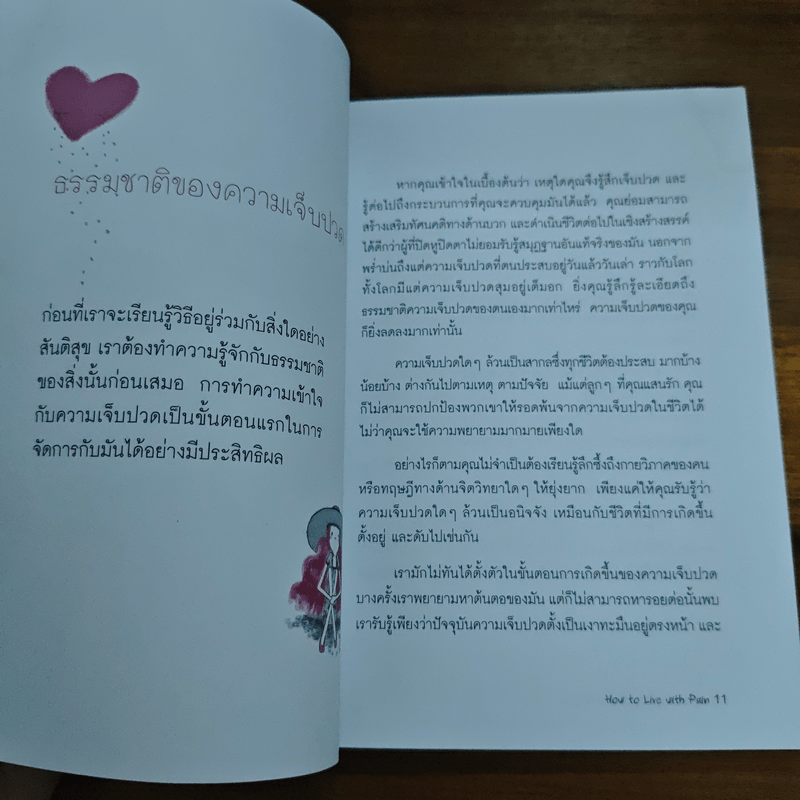 ธรรมชาติของความเจ็บปวด
ก่อนที่เราจะเรียนรู้วิธีอยู่ร่วมกับสิ่งใดอย่าง
สันติสุข เราต้องทำความรู้จักกับธรรมชาติ
ของสิ่งนั้นก่อนเสมอ การทำความเข้าใจ
กับความเจ็บปวดเป็นขั้นตอนแรกในการ
จัดการกับมันได้อย่างมีประสิทธิผล
หากคุณเข้าใจในเบื้องต้นว่า เหตุใดคุณจึงรู้สึกเจ็บปวด และ
รู้ต่อไปถึงกระบวนการที่คุณจะควบคุมมันได้แล้ว คุณย่อมสามารถ
สร้างเสริมทัศนคติทางด้านบวก และดำเนินชีวิตต่อไปในเชิงสร้างสรรค์
ได้ดีกว่าผู้ที่ปิดหูปิดตาไม่ยอมรับรู้สมุฏฐานอันแท้จริงของมัน นอกจาก
พร่ำบ่นถึงแต่ความเจ็บปวดที่ตนประสบอยู่วันแล้ววันเล่า ราวกับโลก
ทั้งโลกมีแต่ความเจ็บปวดสุมอยู่เต็มอก ยิ่งคุณรู้ลึกรู้ละเอียดถึง
ธรรมชาติความเจ็บปวดของตนเองมากเท่าไหร่ ความเจ็บปวดของคุณ
ก็ยิ่งลดลงมากเท่านั้น
ความเจ็บปวดใดๆ ล้วนเป็นสากลซึ่งทุกชีวิตต้องประสบ มากบ้าง
น้อยบ้าง ต่างกันไปตามเหตุ ตามปัจจัย แม้แต่ลูกๆ ที่คุณแสนรัก คุณ
ก็ไม่สามารถปกป้องพวกเขาให้รอดพ้นจากความเจ็บปวดในชีวิตได้
ไม่ว่าคุณจะใช้ความพยายามมากมายเพียงใด
อย่างไรก็ตามคุณไม่จำเป็นต้องเรียนรู้ลึกซึ้งถึงกายวิภาคของคน
หรือทฤษฎีทางด้านจิตวิทยาใดๆ ให้ยุ่งยาก เพียงแค่ให้คุณรับรู้ว่า
ความเจ็บปวดใดๆ ล้วนเป็นอนิจจัง เหมือนกับชีวิตที่มีการเกิดขึ้น
ตั้งอยู่ และดับไปเช่นกัน
เรามักไม่ทันได้ตั้งตัวในขั้นตอนการเกิดขึ้นของความเจ็บปวด
บางครั้งเราพยายามหาต้นตอของมัน แต่ก็ไม่สามารถหารอยต่อนั้นพบ
เรารับรู้เพียงว่าปัจจุบันความเจ็บปวดตั้งเป็นเงาทะมึนอยู่ตรงหน้า และ
How to Live with Pain 11